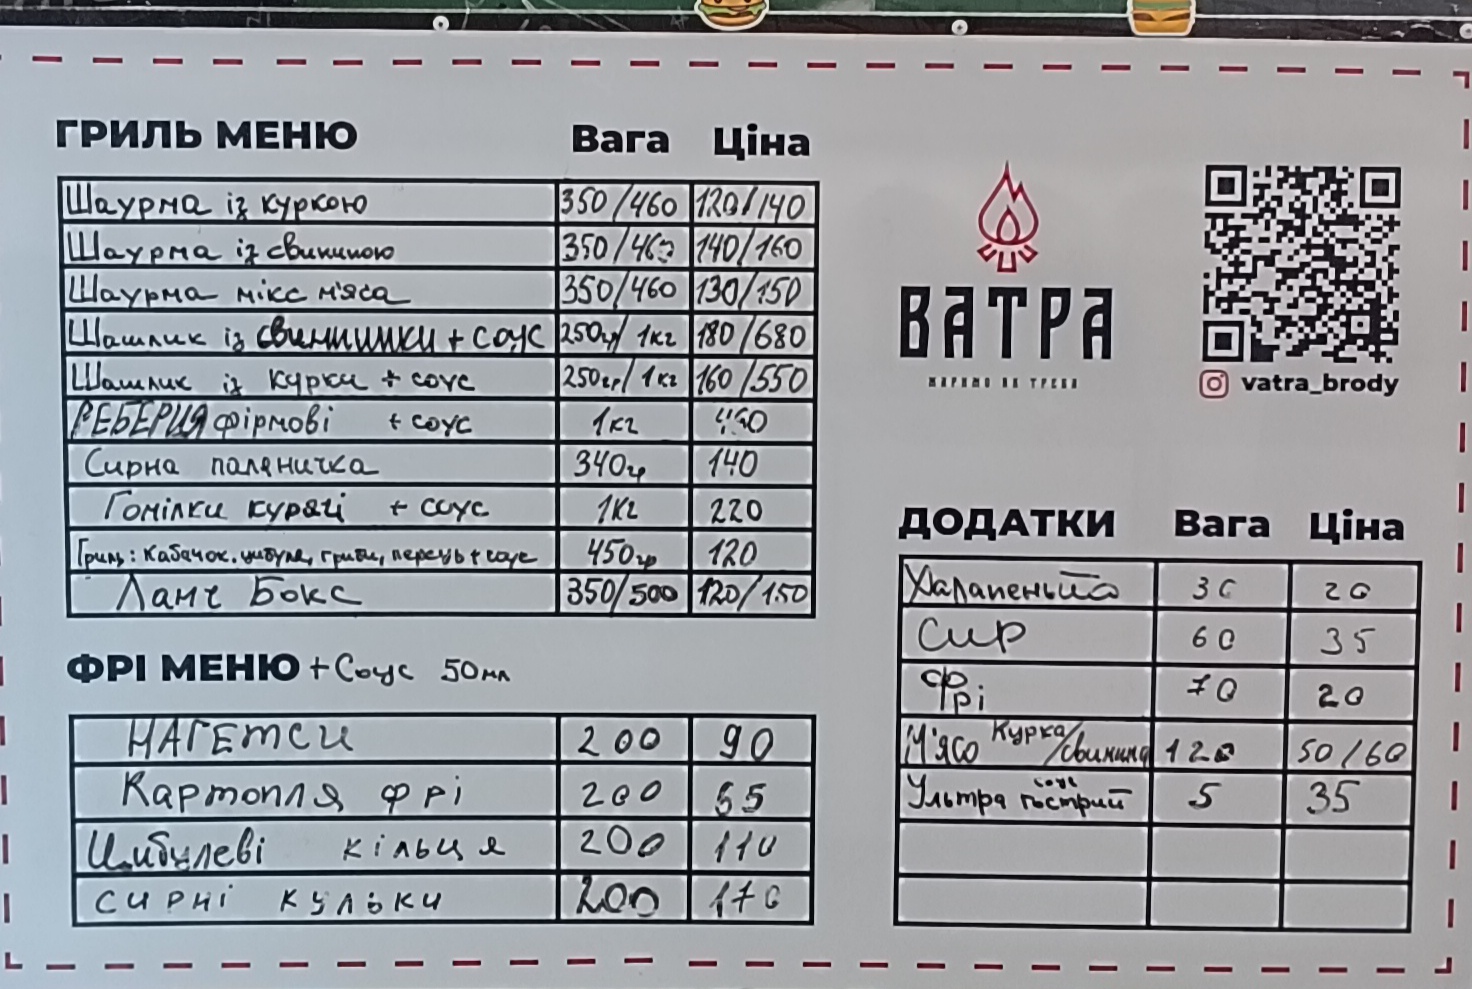 ГРИЛЬ МЕНЮ Вага Ціна
Шаурма із куркою 350/460 120/140
Шаурма із свининою 350/460 140/160
Шаурма мікс м'яса 350/460 130/150
Шашлик із свинишки + соус 250гр/ 1кг 180/680
Шашлик із курки + соус 250гр/ 1кг 160/550
РЕБЕРЦЯ фірмові + соус 1кг
Сирна паляничка 340гр 140
Гомілки курячі + соус 1кг 220
Гриль: кабачок, цибуля, гриби, перець + соус 450гр 120
Ланч Бокс 350/500 120/150
ФРІ МЕНЮ + Соус 50мл
НАГЕТСИ 200 90
Картопля фрі 200
Цибулеві кільця 200 110
сирні кульки 200 170
ВАТРА
ЖАРИМО ЯК ТРЕБА
vatra_brody
ДОДАТКИ Вага Ціна
Халапеньйо 30 20
СИР 60 35
Фрі 70 20
М'ясо Курка/свинина 120 50/60
Ультра гострий соус 5 35